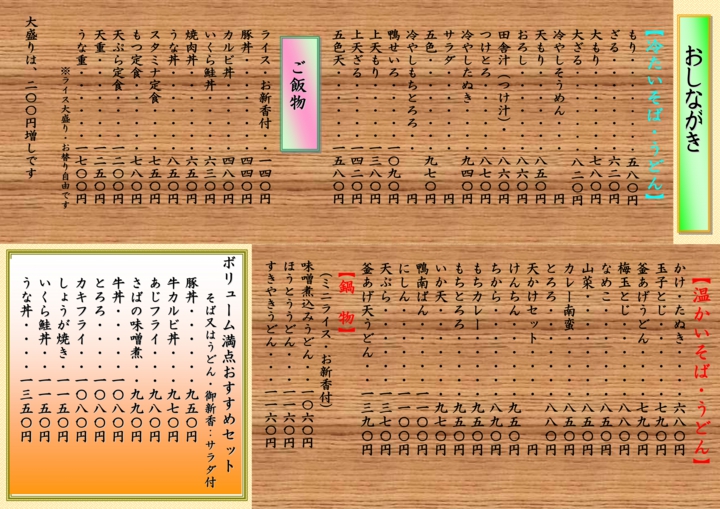 おしながき
【冷たいそば・うどん】
もり・・・・・・五八〇円
ざる・・・・・・六二〇円
大もり・・・・・七八〇円
大ざる・・・・・八二〇円
冷やしそうめん・・　円
天もり・・・・・八五〇円
おろし・・・・・八六〇円
田舎汁(つけ汁)・八六〇円
つけとろ・・・・八七〇円
冷やしたぬき・・九四〇円
サラダ・・・・・　円
五色・・・・・・九七〇円
冷やしもちとろろ・　円
鴨せいろ・・・一〇九〇円
上天もり・・・一三八〇円
上天ざる・・・一四二〇円
五色天・・・・一五八〇円
ご飯物
ライス・お新香付・一四〇円
豚丼・・・・・・四四〇円
カルビ丼・・・・四八〇円
いくら鮭丼・・・六三〇円
焼肉丼・・・・・六五〇円
うな丼・・・・・八五〇円
スタミナ定食・・七五〇円
もつ定食・・・・七八〇円
天ぷら定食・・一二〇〇円
天重・・・・・一二五〇円
うな重・・・・一七〇〇円
※ライス大盛り・お替り自由です
大盛りは、二〇〇円増しです
【温かいそば・うどん】
かけ・たぬき・・六八〇円
玉子とじ・・・・七九〇円
釜あげうどん・・七九〇円
梅玉とじ・・・・八八〇円
なめこ・・・・・八八〇円
山菜・・・・・・八五〇円
カレー南蛮・・・八五〇円
とろろ・・・・・八八〇円
天かけセット・・　円
けんちん・・・・九五〇円
ちから・・・・・八九〇円
もちカレー・・・九五〇円
もちとろろ・・・九五〇円
いか天・・・・・九七〇円
鴨南ばん・・・一一〇〇円
にしん・・・・一一〇〇円
天ぷら・・・・一三七〇円
釜あげ天うどん・一三九〇円
【鍋　物】
(ミニライス・お新香付)
味噌煮込みうどん・一〇六〇円
ほうとううどん・・一一六〇円
すきやきうどん・・一一六〇円
ボリューム満点おすすめセット
そば又はうどん・御新香・サラダ付
豚丼・・・・・・九五〇円
牛カルビ丼・・・九七〇円
あじフライ・・・九八〇円
さばの味噌煮・・九九〇円
牛丼・・・・・一〇八〇円
とろろ・・・・一〇八〇円
カキフライ・・一〇八〇円
しょうが焼き・一一五〇円
いくら鮭丼・・一一五〇円
うな丼・・・・一三五〇円